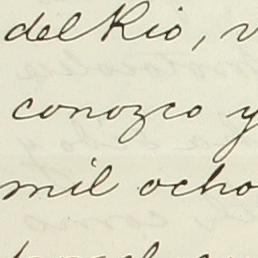 del Rio, v
conozco y
mil ocho